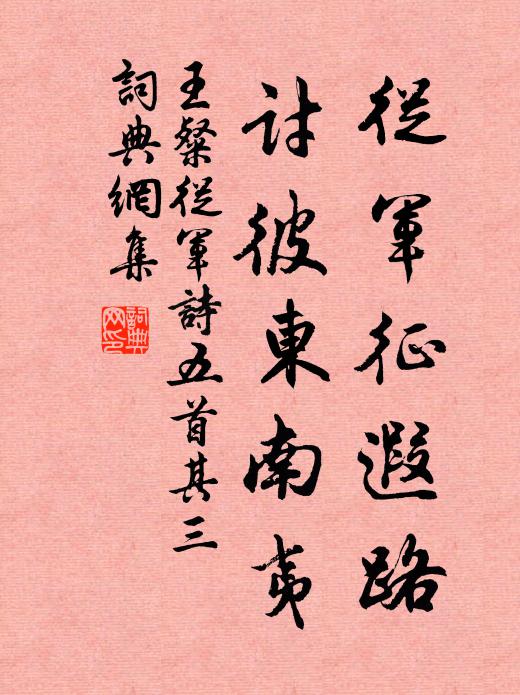 從軍征遐路
討彼東南夷
王粲從軍詩五首其三
詞典網集
詞典網印